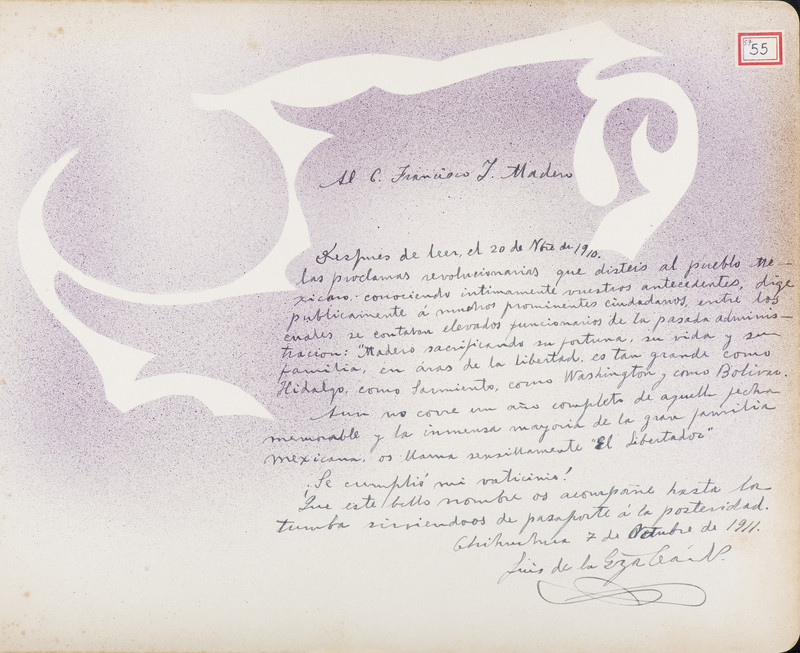 55
Al C. Francisco I. Madero
Despues de leer, el 20 de Nbre de 1910.
las proclamas revolucionarias que disteis al pueblo me-
xicano: conociendo intimamente vuestros antecedentes, dige
publicamente á muchos prominentes ciudadanos, entre los
cuales se contaban elevados funcionarios de la pasada adminis-
tracion: "Madero sacrificando su fortuna, su vida y su
familia, en áras de la libertad, es tan grande como
Hidalgo, como Sarmiento, como Washington y como Bolivar.
Aun no corre un año completo de aquella fecha
memorable y la inmensa mayoria de la gran familia
mexicana, os llama sensillamente "El Libertador"
¡Se cumplió mi vaticinio!
Que este bello nombre os acompañe hasta la
tumba sirviendoos de pasaporte á la posteridad.
Chihuahua 7 de Octubre de 1911.
Luis de la Gza